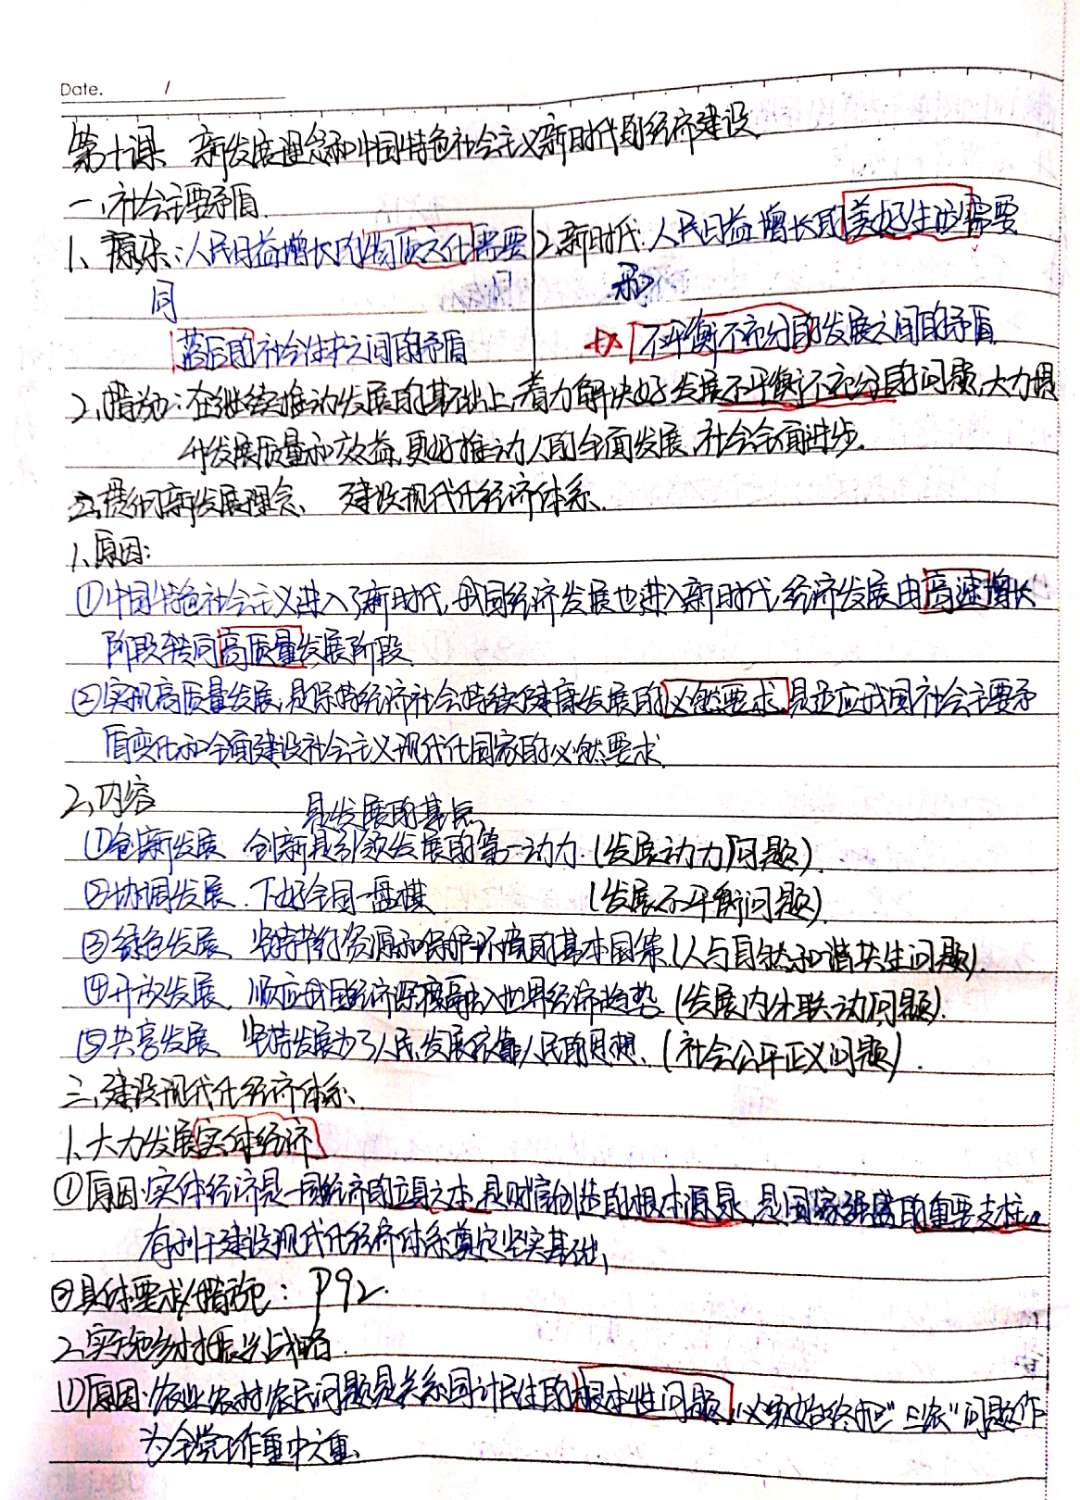 Date. /
第十课 新发展理念和中国特色社会主义新时代的经济建设
一、社会主要矛盾
1、原来:人民日益增长的物质文化需要
同
落后的社会生产之间的矛盾
2.新时代:人民日益增长的美好生活需要
和
不平衡不充分的发展之间的矛盾
2、措施:在继续推动发展的基础上,着力解决好发展不平衡不充分的问题,大力提
升发展质量和效益,更好推动人的全面发展、社会全面进步.
二、贯彻新发展理念、 建设现代化经济体系.
1、原因:
①中国特色社会主义进入了新时代,我国经济发展也进入新时代,经济发展由高速增长
阶段转向高质量发展阶段.
②实现高质量发展,是保持经济社会持续健康发展的必然要求,是适应我国社会主要矛
盾变化和全面建设社会主义现代化国家的必然要求.
2、内容
是发展的基点
①创新发展 创新是引领发展的第一动力.(发展动力问题).
②协调发展. 下好全国一盘棋 (发展不平衡问题).
③绿色发展. 坚持节约资源和保护环境的基本国策.(人与自然和谐共生问题).
④开放发展. 顺应我国经济深度融入世界经济趋势 (发展内外联动问题).
⑤共享发展. 坚持发展为了人民,发展依靠人民的思想. (社会公平正义问题).
三、建设现代化经济体系.
1、大力发展实体经济
①原因:实体经济是一国经济的立身之本,是财富创造的根本源泉,是国家强盛的重要支柱。
有利于建设现代化经济体系奠定坚实基础,
②具体要求/措施: P92.
2、实施乡村振兴战略.
①原因:农业农村农民问题是关系国计民生的根本性问题,必须始终把"三农"问题作
为全党工作重中之重.